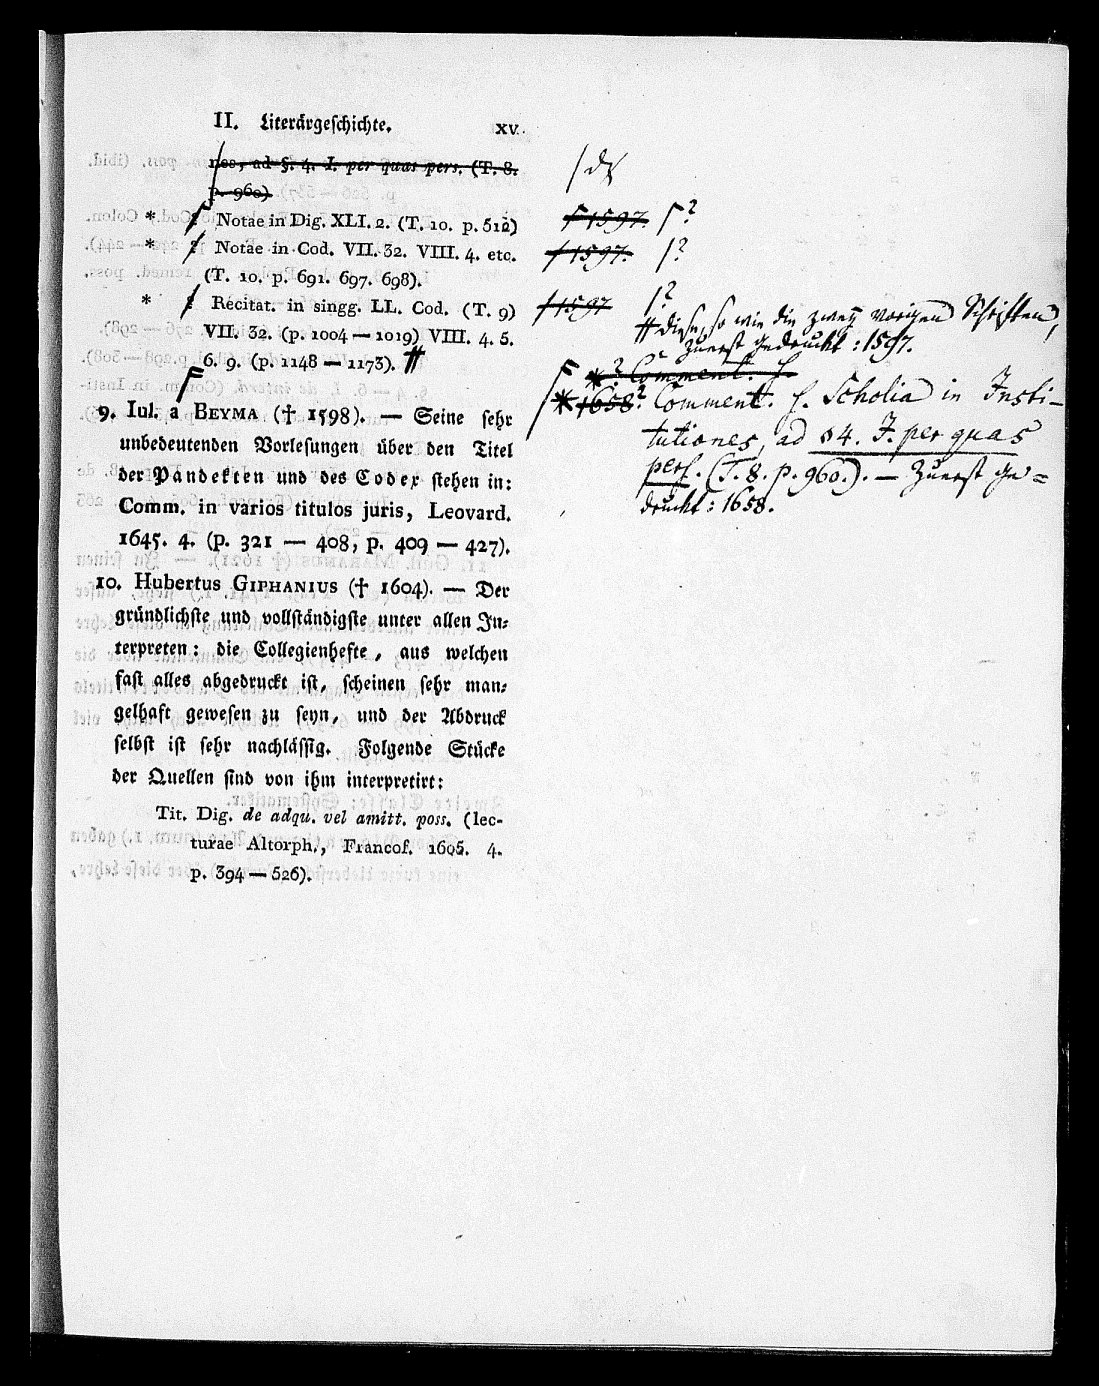 II. Literärgeschichte. XV
nes, ad §. 4. I. per quas pers. (T. 8.
p. 960)
* Notae in Dig. XLI. 2. (T. 10. p. 512)
* Notae in Cod. VII. 32. VIII. 4. etc.
(T. 10. p. 691. 697. 698).
* Recitat. in singg. LL. Cod. (T. 9)
VII. 32. (p. 1004 — 1019) VIII. 4. 5.
6. 9. (p. 1148 — 1173).
9. Iul. a BEYMA († 1598). — Seine sehr
unbedeutenden Vorlesungen über den Titel
der Pandekten und des Codex stehen in:
Comm. in varios titulos juris, Leovard.
1645. 4. (p. 321 — 408, p. 409 — 427).
10. Hubertus GIPHANIUS († 1604). — Der
gründlichste und vollständigste unter allen In⸗
terpreten: die Collegienhefte, aus welchen
fast alles abgedruckt ist, scheinen sehr man⸗
gelhaft gewesen zu seyn, und der Abdruck
selbst ist sehr nachlässig. Folgende Stücke
der Quellen sind von ihm interpretirt:
Tit. Dig. de adqu. vel amitt. poss. (lec-
turae Altorph., Francof. 1605. 4.
p. 394 — 526).
1597. ?
1597. ?
1597 ?
diese, so wie die zwey vorigen Schriften,
zuerst gedruckt: 1597.
*? Comment.
* 1658? Comment. s. Scholia in Insti-
tutiones, ad § 4. J. per quas
pers. (T. 8. p. 960.). — Zuerst ge=
druckt: 1658.